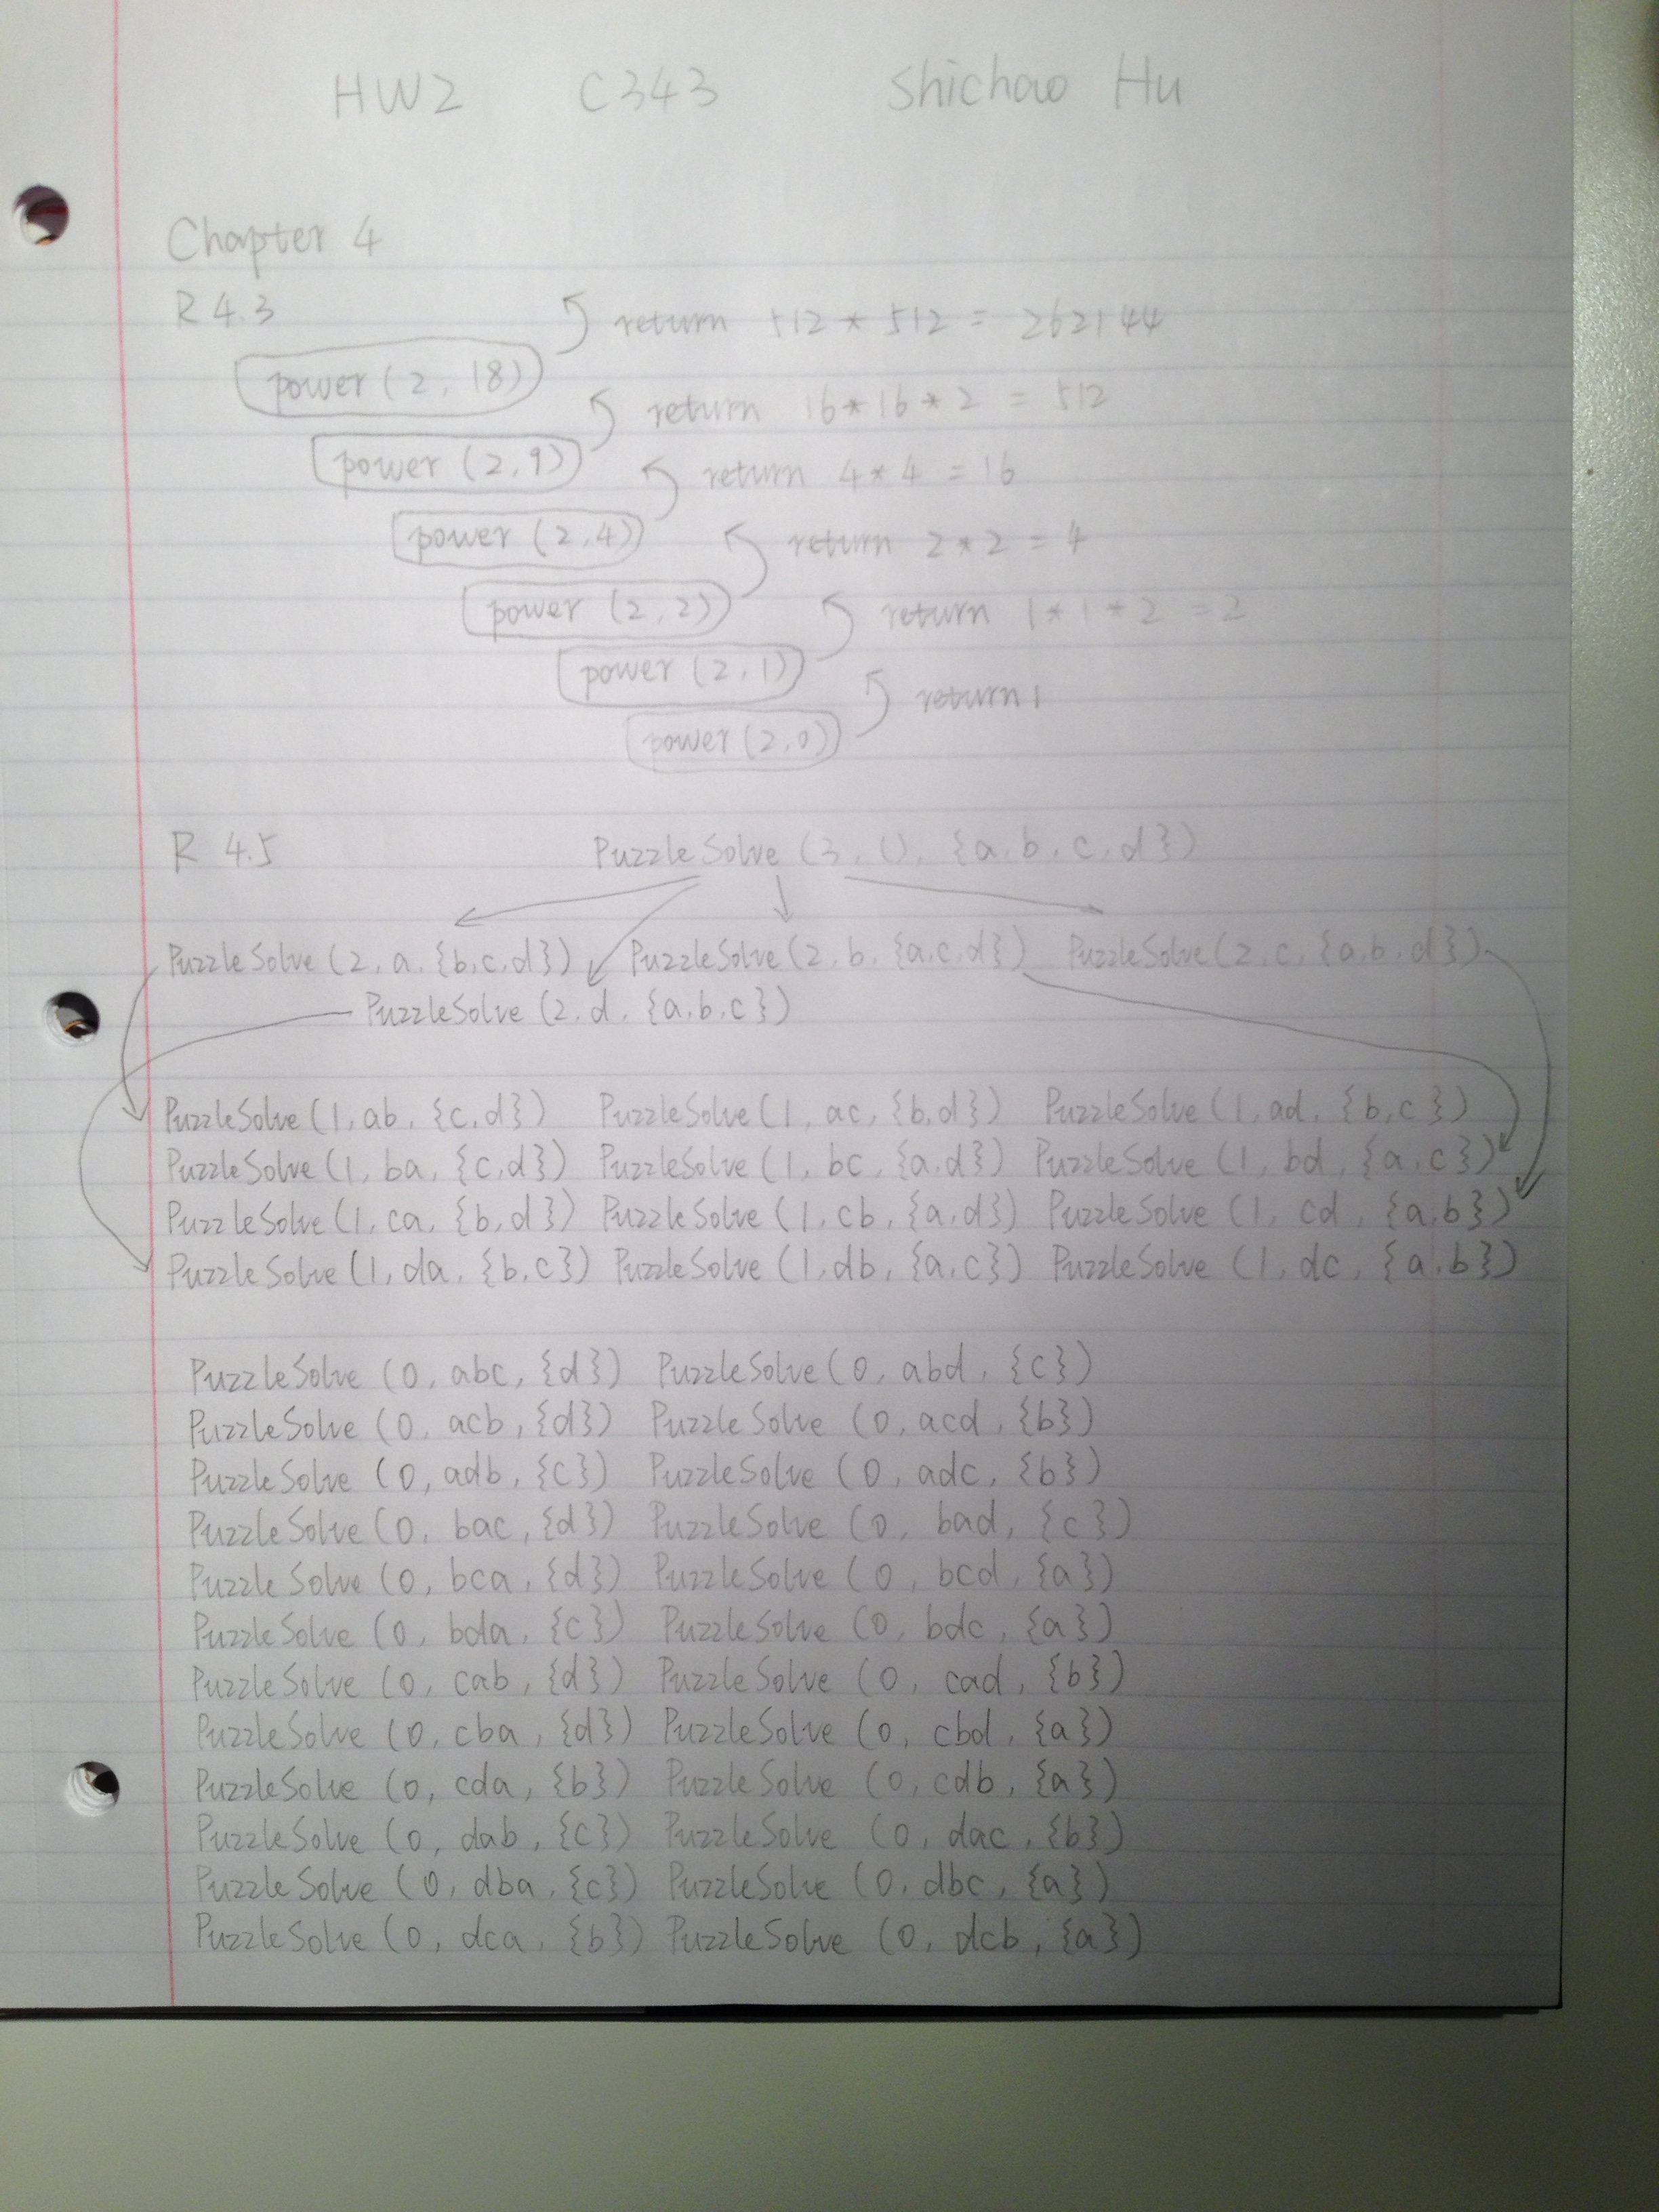 HW2 C343 Shichao Hu
Chapter 4
R 4.3
return 512 * 512 = 262144
power (2, 18)
return 16 * 16 * 2 = 512
power (2, 9)
return 4 * 4 = 16
power (2, 4)
return 2 * 2 = 4
power (2, 2)
return 1 * 1 * 2 = 2
power (2, 1)
return 1
power (2, 0)
R 4.5 PuzzleSolve (3, (), {a, b, c, d})
PuzzleSolve (2, a, {b, c, d}) PuzzleSolve (2, b, {a, c, d}) PuzzleSolve (2, c, {a, b, d})
PuzzleSolve (2, d, {a, b, c})
PuzzleSolve (1, ab, {c, d}) PuzzleSolve (1, ac, {b, d}) PuzzleSolve (1, ad, {b, c})
PuzzleSolve (1, ba, {c, d}) PuzzleSolve (1, bc, {a, d}) PuzzleSolve (1, bd, {a, c})
PuzzleSolve (1, ca, {b, d}) PuzzleSolve (1, cb, {a, d}) PuzzleSolve (1, cd, {a, b})
PuzzleSolve (1, da, {b, c}) PuzzleSolve (1, db, {a, c}) PuzzleSolve (1, dc, {a, b})
PuzzleSolve (0, abc, {d}) PuzzleSolve (0, abd, {c})
PuzzleSolve (0, acb, {d}) PuzzleSolve (0, acd, {b})
PuzzleSolve (0, adb, {c}) PuzzleSolve (0, adc, {b})
PuzzleSolve (0, bac, {d}) PuzzleSolve (0, bad, {c})
PuzzleSolve (0, bca, {d}) PuzzleSolve (0, bcd, {a})
PuzzleSolve (0, bda, {c}) PuzzleSolve (0, bdc, {a})
PuzzleSolve (0, cab, {d}) PuzzleSolve (0, cad, {b})
PuzzleSolve (0, cba, {d}) PuzzleSolve (0, cbd, {a})
PuzzleSolve (0, cda, {b}) PuzzleSolve (0, cdb, {a})
PuzzleSolve (0, dab, {c}) PuzzleSolve (0, dac, {b})
PuzzleSolve (0, dba, {c}) PuzzleSolve (0, dbc, {a})
PuzzleSolve (0, dca, {b}) PuzzleSolve (0, dcb, {a})